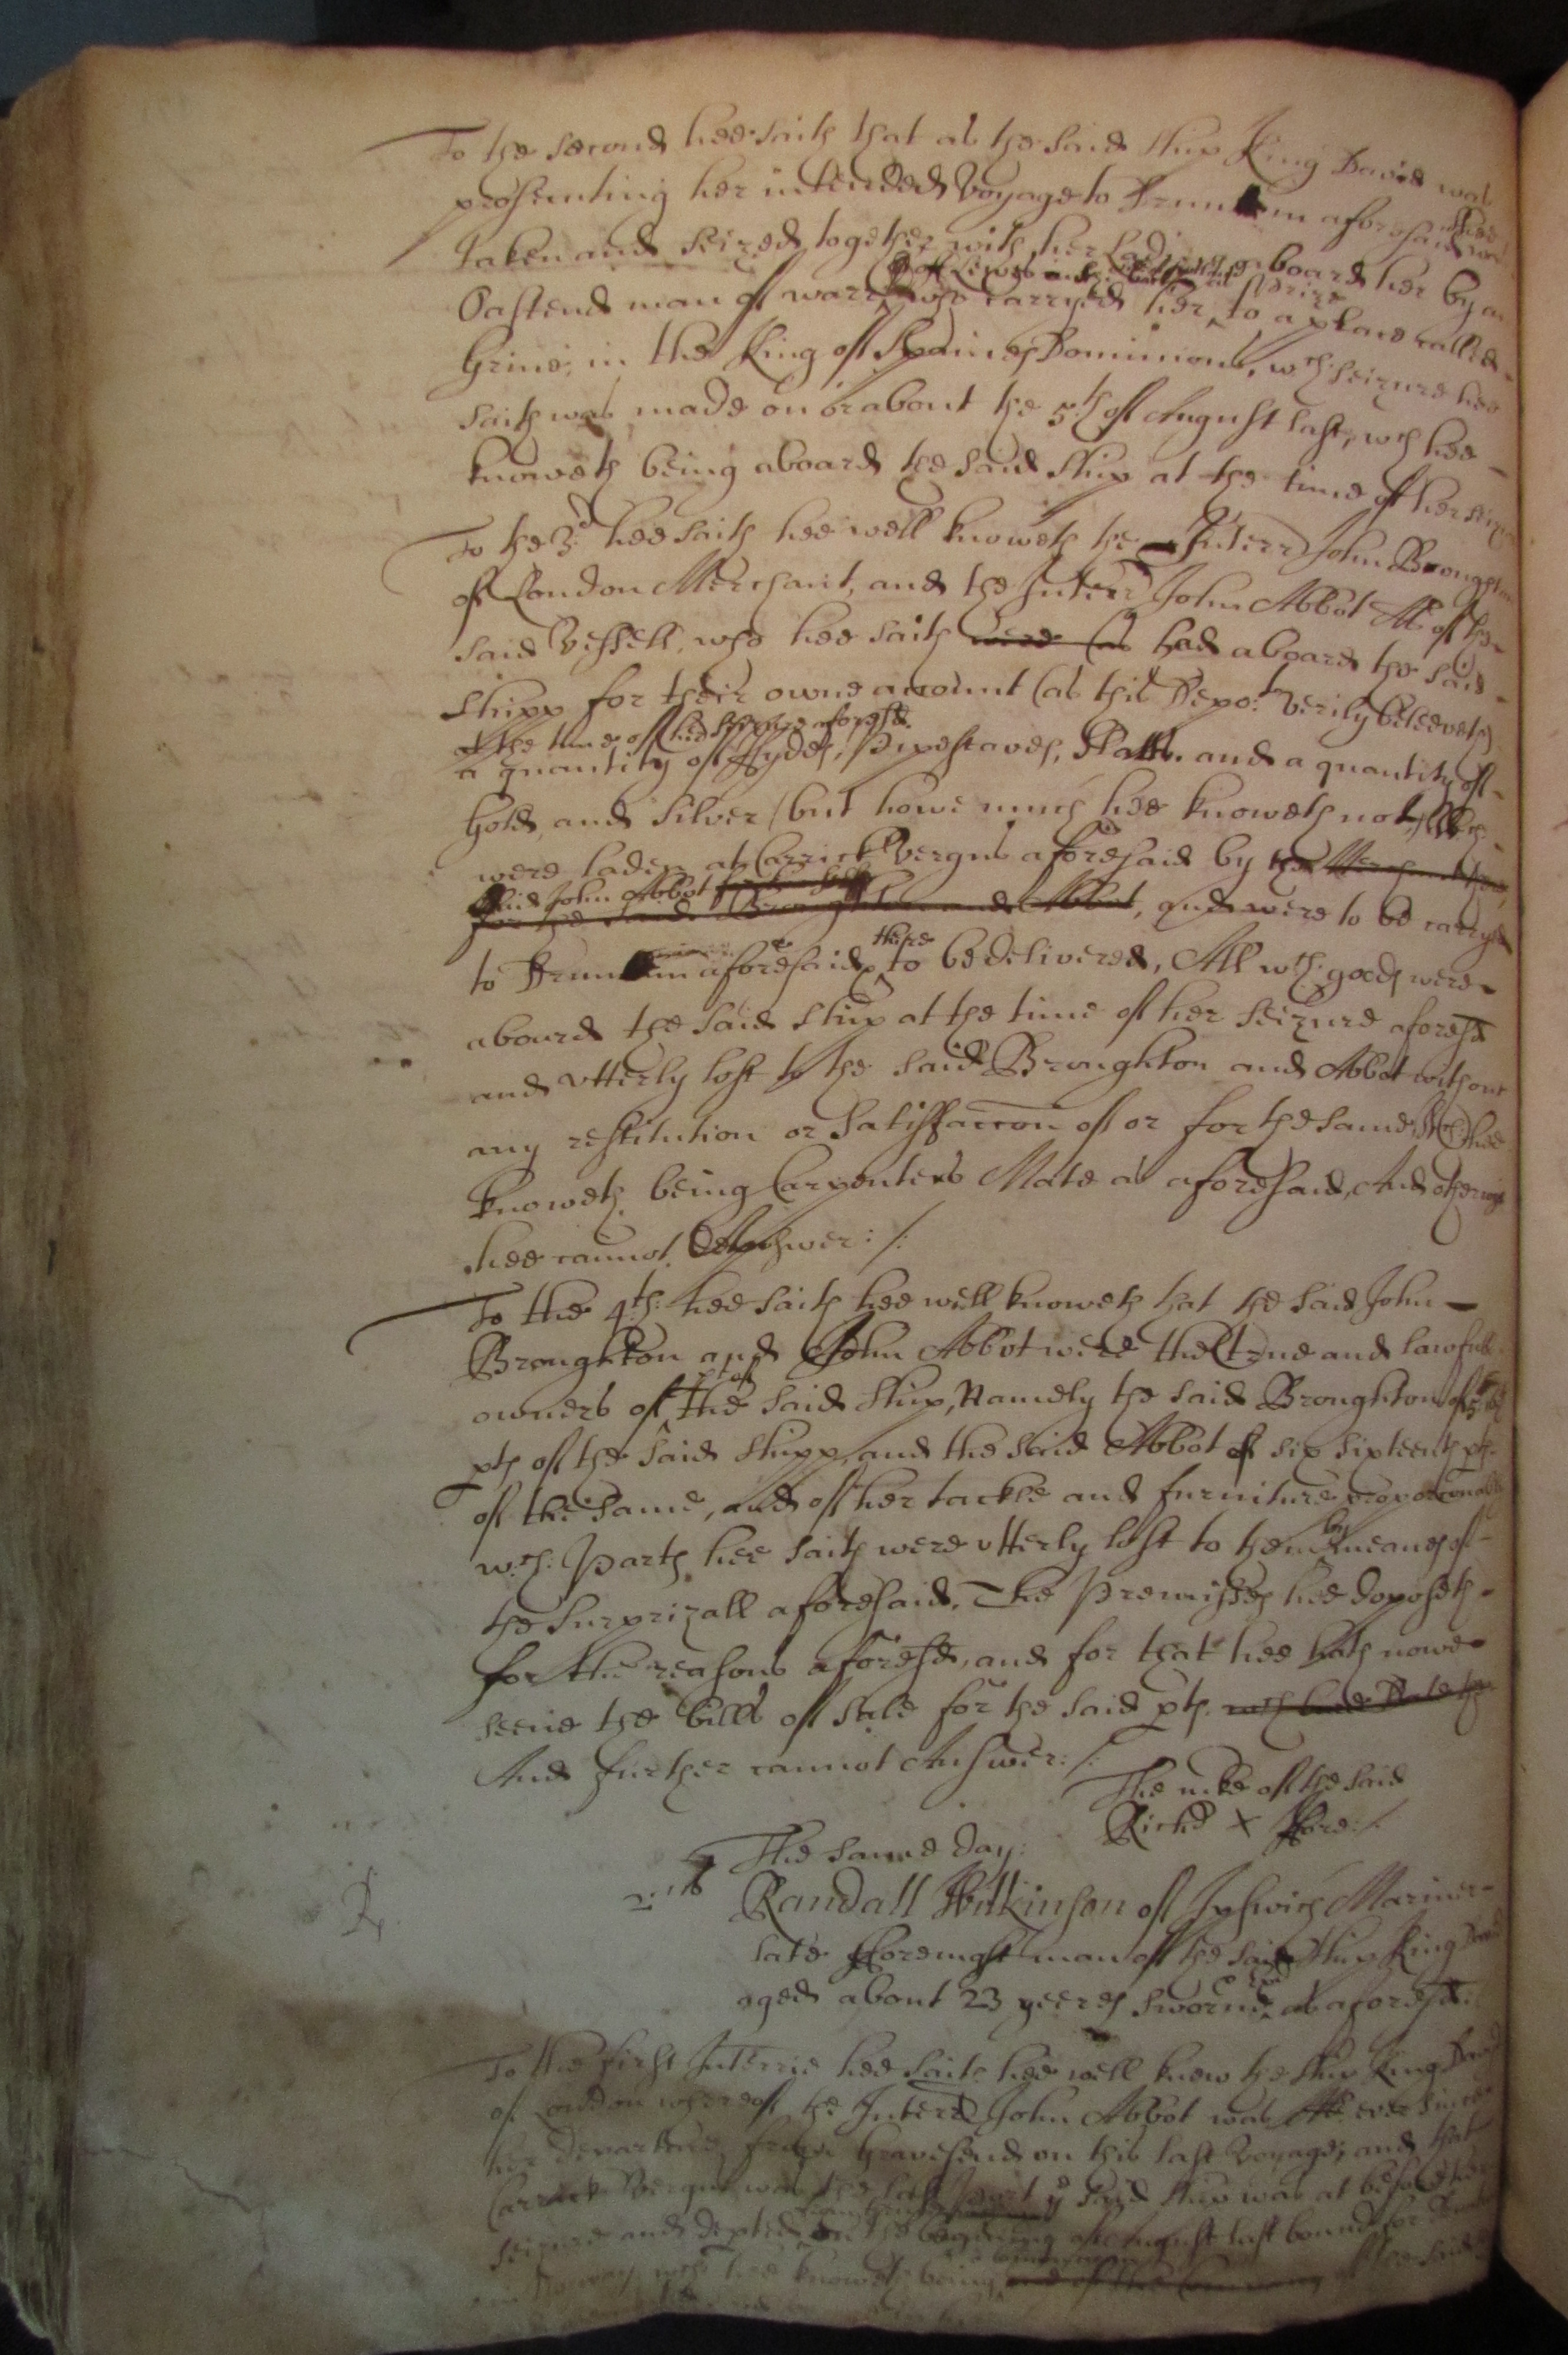 To the second hee saith that as the said shipp King David was
prosecuting her intended voyage to aforesaid shee was
taken and seized together with her Ladeing aboard her by an
Oastend man of warr who carryed her to a place called
Grine, in the King of Spaines Dominions, wch: seizure hee
saith was made on or about the 5th of August last, wch hee
knoweth being aboard the said shipp at the time of her seizure
To the 3d. hee saith hee well knoweth the Interr John Broughton
of London Merchant, and the Interr John Abbot Mr of the
said Vessell, who hee saith had aboard the said
shipp for their owne account (as this Depot verily beleeveth)
at the time of her seizure aforesd.
a quantity of Hydes, Pipestaves, and a quantity of
Gold and Silver (but howe much hee knoweth not) wch
were laden at Carrick Vergus aforesaid by the
said John Abbot
and were to be carryed
to aforesaid there to be delivered, All wch: goods were
aboard the said shipp at the time of her seizure aforesd
and vtterly lost to the said Broughton and Abbot without
any restitution or Satisfaccon of or for the same, wch hee
knoweth being Carpenters Mate as aforesaid, And otherwise
hee cannot Answer: /:
To the 4th: hee saith hee well knoweth that the said John
Broughton and John Abbot were the true and lawfull
owners of pts of the said shipp, Namely the said Broughton of
pts of the said shipp, and the said Abbot of six sixteenth pts
of the same, and of her tackle and furniture proporconably
wch: Parts hee saith were vtterly lost to them by meanes of
the surprizall aforesaid, The Premisses hee deposeth
for the reasons aforesd, and for that hee hath nowe
seene the bills of sale for the said pts.
And further cannot Answer: /:
The mke of the said
Richd X ffore: /.
The same day:
Randall Wilkinson of Ipswich Mariner
late fforemast man of the said shipp King David
aged about 23 yeeres sworne as aforesd:
To the first Interrie hee saith hee well knew the shipp King David
of London whereof the Interrd John Abbot was Mr ever since
her departure from Gravesend on this last voyage, and that
Carrick Vergus was the last Port ye said shipp was at before her
seizure and depted the beginning of August last bound for
wch hee knoweth being